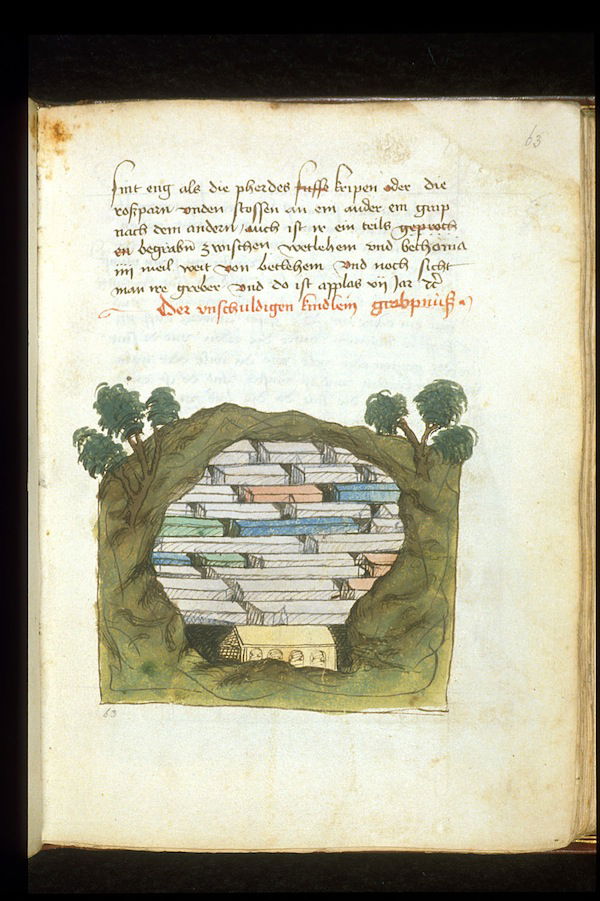 63
sint eng als die pherdes suffe kripen oder die
roßparn vnden stossen an ein ander ein grup
nach dem andern / auch ist ir ein teils geproch
en begrabn zwischen wetlehem vnd bethania
iiii meil weit von betlehem vnd noch sicht
man ire greber vnd do ist applas vii Jar
Der vnschuldigen kindlein grabpnuß
63